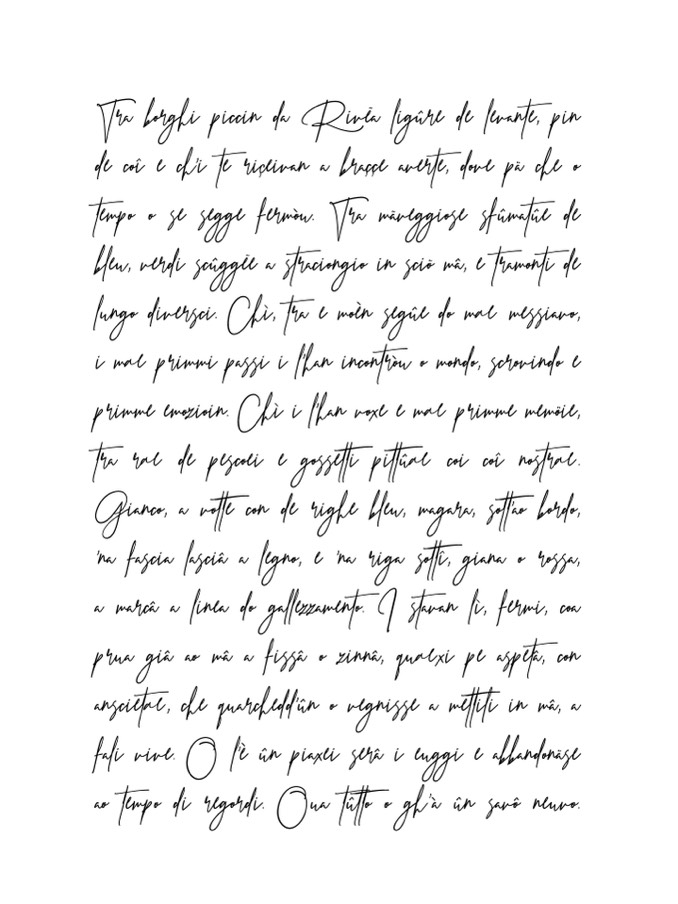 Tra borghi piccin da Rivêa ligûre de levante, pin
de coî e ch'i te riçeivan a braççe averte, dove pâ che o
tempo o se segge fermòu. Tra mâveggiose sfûmatûe de
bleu, verdi scûggëe a straciongio in sciö mâ, e tramonti de
lungo diversci. Chì, tra e moèn segûe do mae messiavo,
i mae primmi passi i l'han incontròu o mondo, scrovindo e
primme emozioin. Chì i l'han voxe e mae primme memöie,
tra rae de pescoei e gossetti pittûae coi coî nostrae.
Gianco, a votte con de righe bleu, magara, sott'ao bordo,
'na fascia lasciâ a legno, e 'na riga sottî, giana o rossa,
a marcâ a linea do gallezzamento. I stavan lì, fermi, coa
prua giâ ao mâ a fissâ o zinnâ, quaexi pe aspëtâ, con
anscietae, che quarchedd'ûn o vegnisse a mettiti in mâ, a
fali vive. O l'è ûn piaxei serâ i euggi e abbandonâse
ao tempo di regordi. Oua tûtto o gh'à ûn savô neuvo.